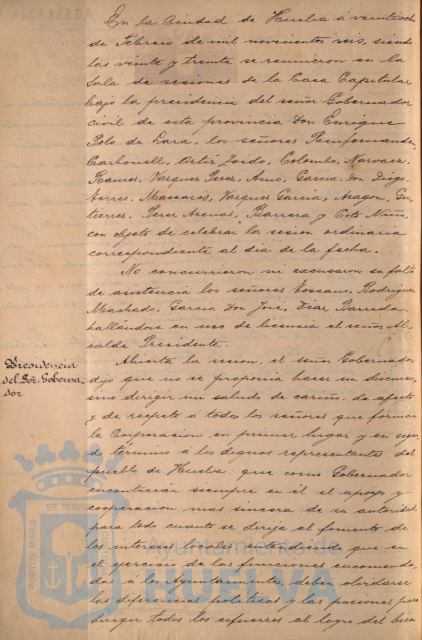 En la Ciudad de Huelva á veintiseis
de Febrero de mil novecientos seis, siendo
las veinte y treinta se reunieron en la
Sala de sesiones de la Casa Capitular
bajo la presidencia del señor Gobernador
civil de esta provincia Don Enrique
Polo de Lara, los señores
Carbonell, Ortiz, Toido, Colombo, Narvaez,
Ramos, Vazquez Perez, Amo, Garcia Don Diego,
Torres, Mascarós, Vazquez Garcia, Aragon, Gu-
tierrez, Perez Arenas, Barrera y Coto Mini,
con objeto de celebrar la sesion ordinaria
correspondiente al dia de la fecha.
No concurrieron ni excusaron su falta
de asistencia los señores Toscano, Rodriguez
Machado, Garcia Don José, Diaz, Barreda,
hallandose en uso de licencia el señor Al-
calde Presidente.
Presidencia
del Sor. Goberna-
dor
Abierta la sesion, el señor Gobernador
dijo que no se proponia hacer un discurso,
sino dirigir un saludo de cariño, de afecto
y de respeto á todos los señores que forman
la Corporacion en primer lugar y en segun-
do término á los dignos representantes del
pueblo de Huelva: que como Gobernador
encontrarán siempre en él el apoyo y
cooperacion mas sincera de su autoridad
para todo cuanto se dirija al fomento de
los intereses locales, entendiendo que en
el ejercicio de las funciones encomenda-
das á los Ayuntamientos, deben olvidarse
las diferencias politicas y las pasiones para
dirigir todos los esfuerzos al logro del bien
PORTUS MARIS
ET TERRAE
Ayuntamiento de
HUELVA